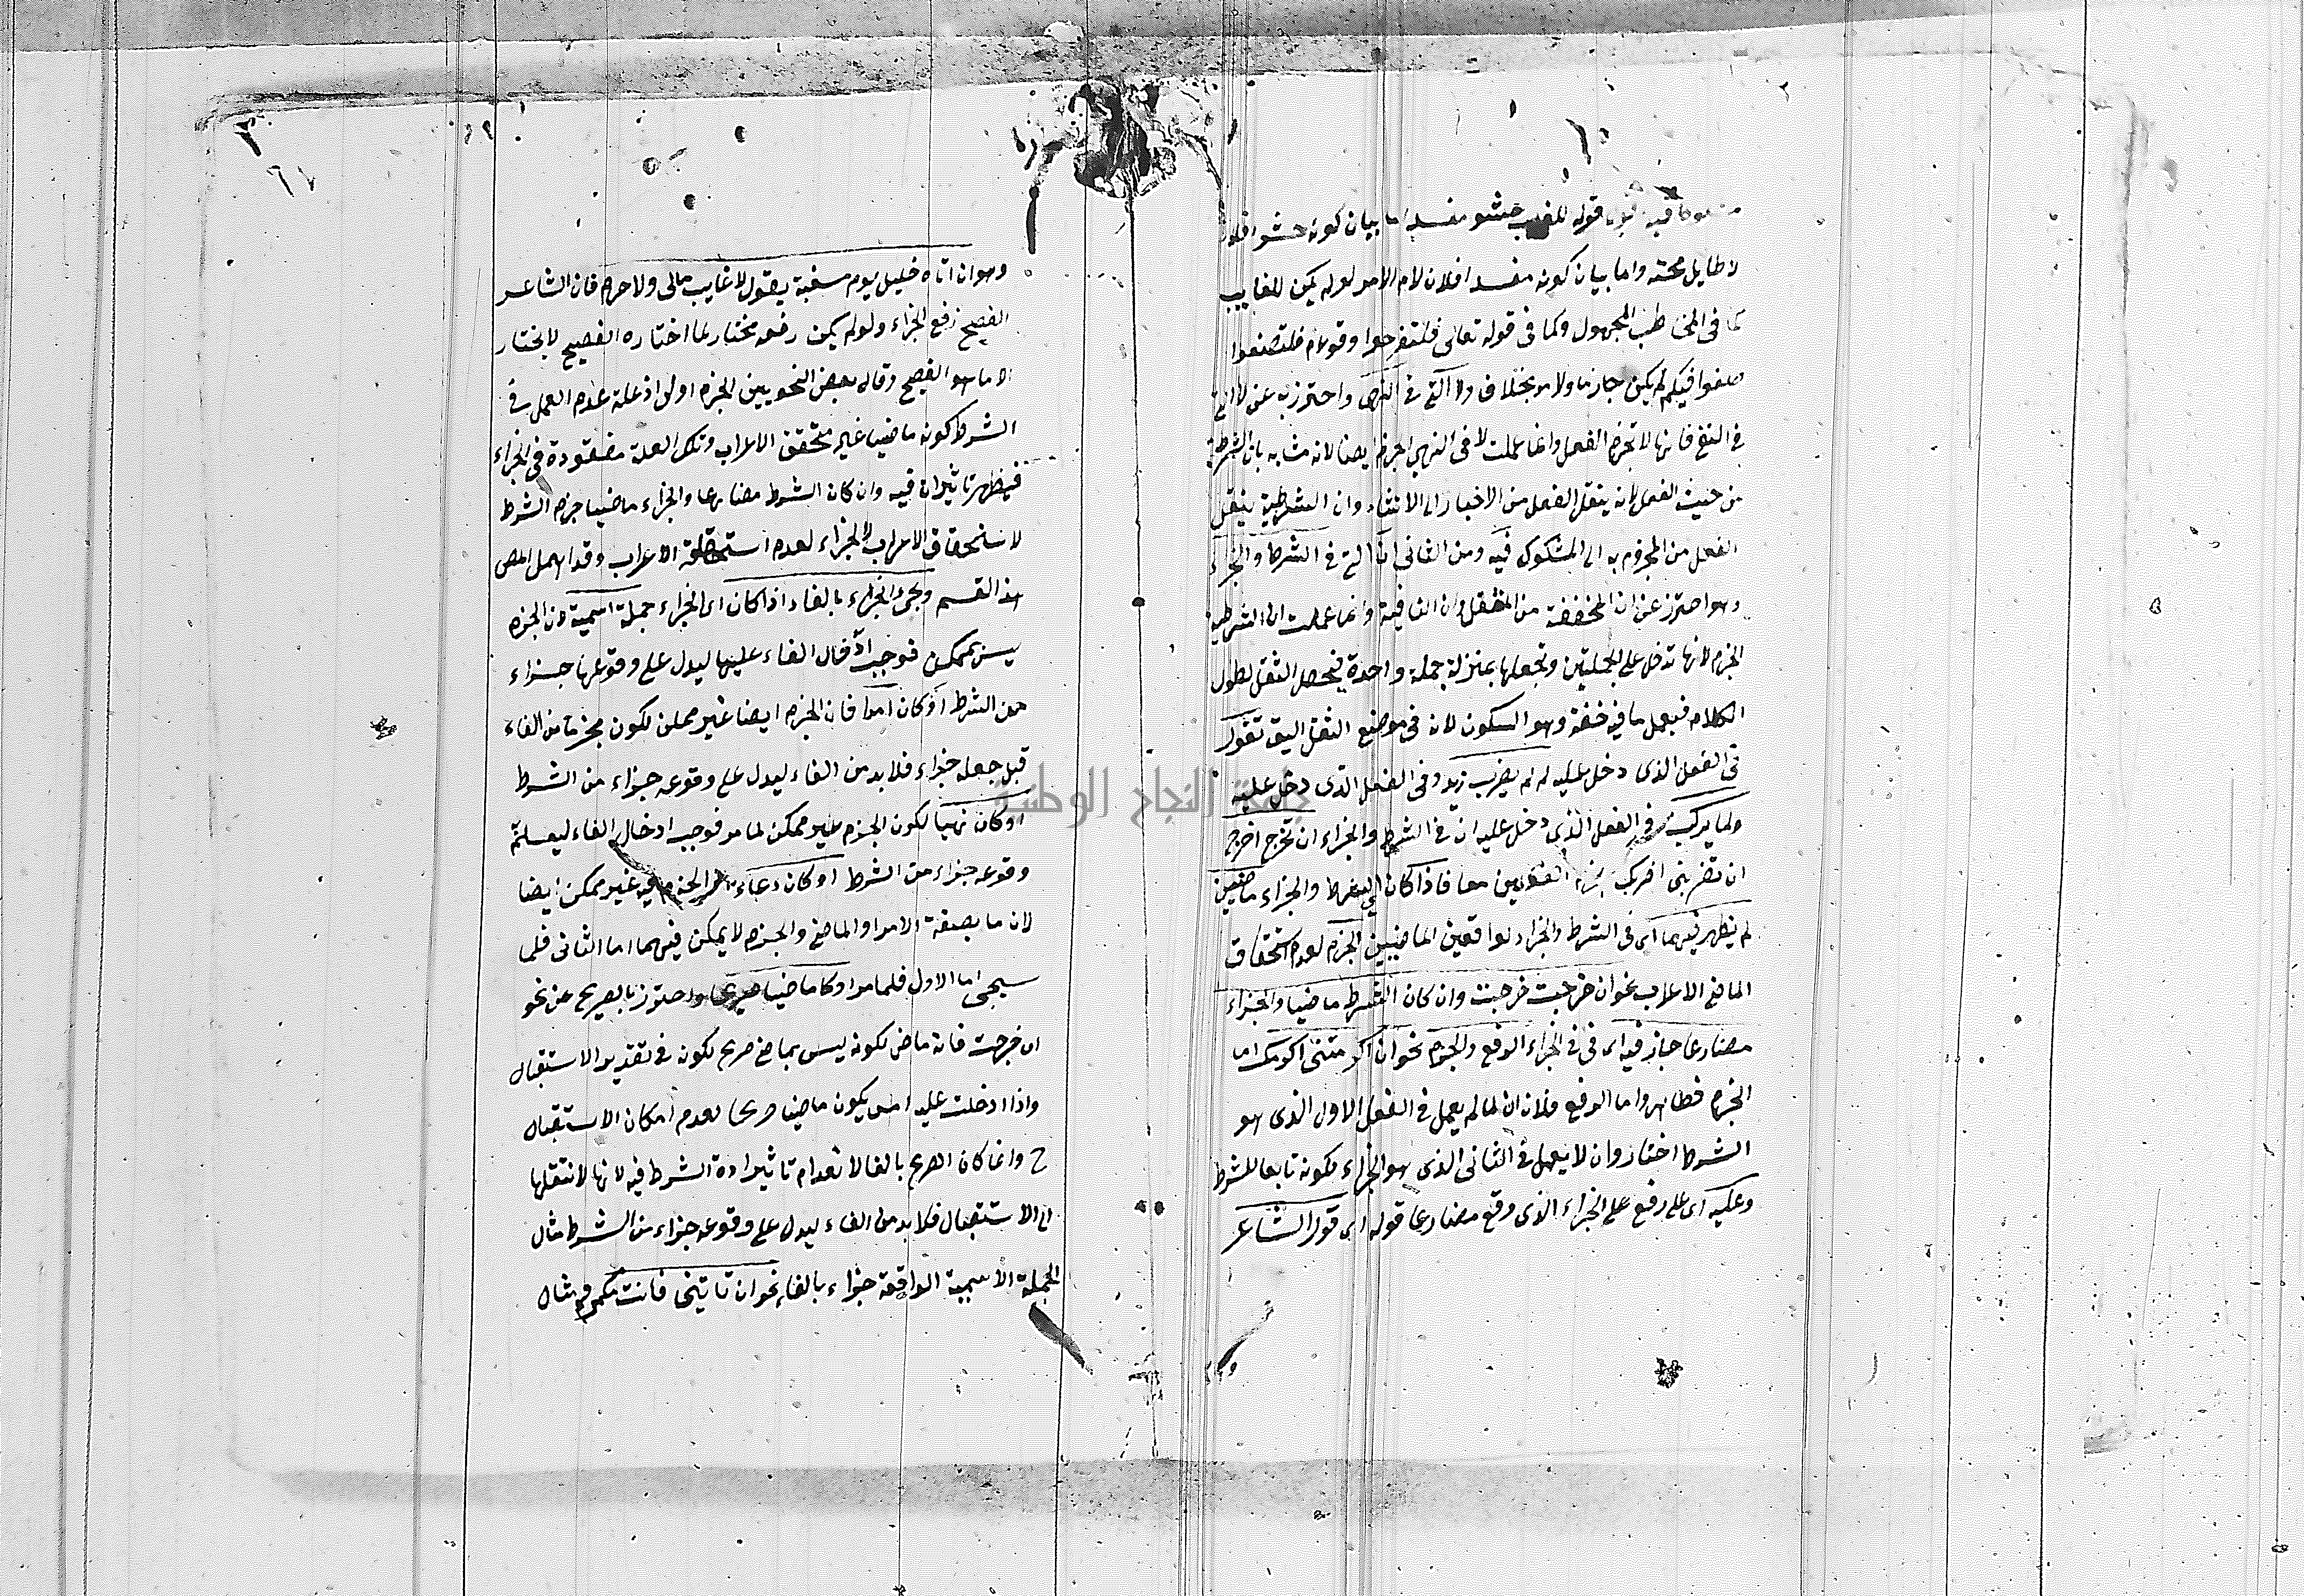 قوله للغايب حشو مفسد اما بيان كونه حشوا فلانه
لا طايل تحته واما بيان كونه مفسدا فلان لام الامر لو لم يكن للغايب
كما في المخاطب المجهول وكما في قوله تعالى فلتفرحوا وقولهم فلتصنعوا
لم يكن جازما ولا مر بخلاف ولا التي في النهي واحترز به عن لا التي
في النفي فانها لا تجزم الفعل وانما عملت لا في النهي الجزم ايضا لانه مشابه بان الشرطية
من حيث الفعل لانه ينقل الفعل من الاخبار الى الانشاء وان الشرطية ينقل
الفعل من المجزوم به الى المشكوك فيه ومن الثاني ان التي في الشرط والجزاء
وهو احترز عن ان المخففة من المثقل وان النافية وانما عملت ان الشرطية
الجزم لانها تدخل على الجملتين وتجعلها بمنزلة جملة واحدة فيحصل الثقل لطول
الكلام فيعمل ما فيه خفة وهو السكون لان في موضع الثقل اليق تقول
في الفعل الذى دخل عليه لم لم يضرب زيد وفى الفعل الذى دخل عليه
ولما يركب وفي الفعل الذى دخل عليه ان في الشرط والجزاء ان تخرج اخرج
ان تضربنى اضربك الفعلين معا فاذا كان اي الشرط والجزاء ماضيين
لم يظهر فيهما اى في الشرط والجزاء لواقعين الماضيين الجزم لعدم استحقاق
الماضي الاعراب نحو ان خرجت خرجت وان كان الشرط ماضيا والجزاء
مضارعا جاز فيه اى في في الجزاء الرفع والجزم نحو ان اكرمتنى اكرمك اما
الجزم فظاهر واما الرفع فلان ان لما لم يعمل في الفعل الاول الذى هو
الشرط اختار وان لا يعمل في الثانى الذى هو الجزاء لكونه تابعا للشرط
وعليه اى على رفع على الجزاء الذى وقع مضارعا قوله اى قول الشاعر
وهو ان اتاه خليل يوم مسغبة يقول لا غايب مالى ولا حرم فان الشاعر
الفصيح رفع الجزاء ولو لم يكن رفعه مختار لما اختاره الفصيح لا يختار
الا ما هو الفصيح وقال بعض النحويين الجزم اولى اذ علة عدم العمل في
الشرط كونه ماضيا غير متحقق الاعراب وتلك العلة مفقودة في الجزاء
فيظهر تاثير ان فيه وان كان الشرط مضارعا والجزاء ماضيا جزم الشرط
لاستحقاق الاعراب لا الجزاء لعدم استحقاقه الاعراب وقد اهمل المص
هذا القسم ويجئ الجزاء بالفاء اذا كان اى الجزاء جملة اسمية لان الجزم
ليس بممكن فوجب ادخال الفاء عليها ليدل على وقوعها جزاء
من الشرط او كان امرا فان الجزم ايضا غير ممكن لكون مجزوما من الفاء
قبل جعله جزاء فلا بد من الفاء ليدل على وقوعه جزاء من الشرط
او كان نهيا لكون الجزم غير ممكن لما مر فوجب ادخال الفاء ليعلم
وقوعه جزاء من الشرط او كان دعاء الجزم فيه غير ممكن ايضا
لان ما بصيغة الامر او الماضي والجزم لا يمكن فيهما اما الثانى فلما
سيجى اما الاول فلما مر او كا ماضيا صريحا واحترز بالصريح عن نحو
ان خرجت فانه ماض لكونه ليس بماضى صريح لكونه في تقدير الاستقبال
واذا ادخلت عليه امس يكون ماضيا صريحا لعدم امكان الاستقبال
ح وانما كان الصريح بالفا لانعدام تاثير اداة الشرط فيه لانها لا تنقلها
الى الاستقبال فلا بد من الفاء ليدل على وقوعه جزاء من الشرط مثال
الجملة الاسمية الواقعة جزاء بالفاء نحو ان تاتينى فانت مكرم مثال
جامعة النجاح الوطنية